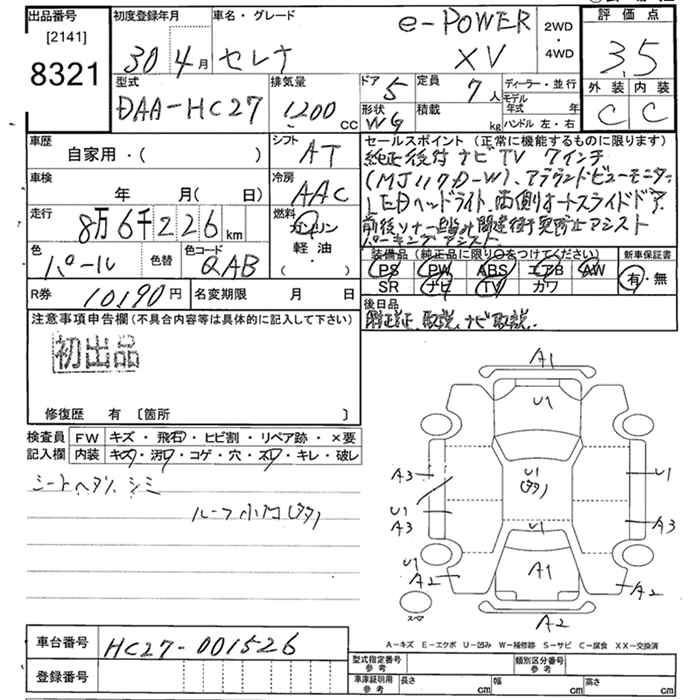 出品番号
[2141]
8321
初度登録年月
30年 4月
車名・グレード
セレナ e-POWER XV
2WD
・
4WD
評価点
3.5
外装 内装
C C
型式
DAA-HC27
排気量
1200 cc
ドア 5
定員 7人
ディーラー・並行
形状 WG
積載 kg
モデル年式 年
ハンドル 左・右
車歴
自家用・( )
シフト
AT
車検
年 月( 日)
冷房
AAC
走行
8万6千226 km
燃料
ガソリン
軽・油
( )
色
パール
色替
色コード
QAB
R券 10190円
名変期限 月 日
セールスポイント (正常に機能するものに限ります)
純正後付ナビTV 7インチ
(MJ117D-W)、アラウンドビューモニター
LEDヘッドライト、両側オートスライドドア、
前後ソナー、踏み間違衝突防止アシスト
パーキングアシスト
装備品(純正品に限り○をつけてください)
新車保証書
PS PW ABS エアB AW
SR ナビ TV カワ
有・無
後日品
保証証、取説、ナビ取説、
注意事項申告欄(不具合内容等は具体的に記入して下さい)
初出品
修復歴 有 〔箇所 〕
検査員記入欄
FW キズ・飛石・ヒビ割・リペア跡・×要
内装 キズ・汚れ・コゲ・穴・スレ・キレ・破レ
シートヘタリ、シミ
A1
U1
A3
U1
U1
A3
A3
U1
U1
A2
A1
A2
スペア
A2
A-キズ E-エクボ U-凹み W-補修跡 S-サビ C-腐食 XX-交換済
車台番号 HC27-001526
登録番号
型式指定番号
参考
類別区分番号
参考
車庫証明用
参考
長さ cm
幅 cm
高さ cm